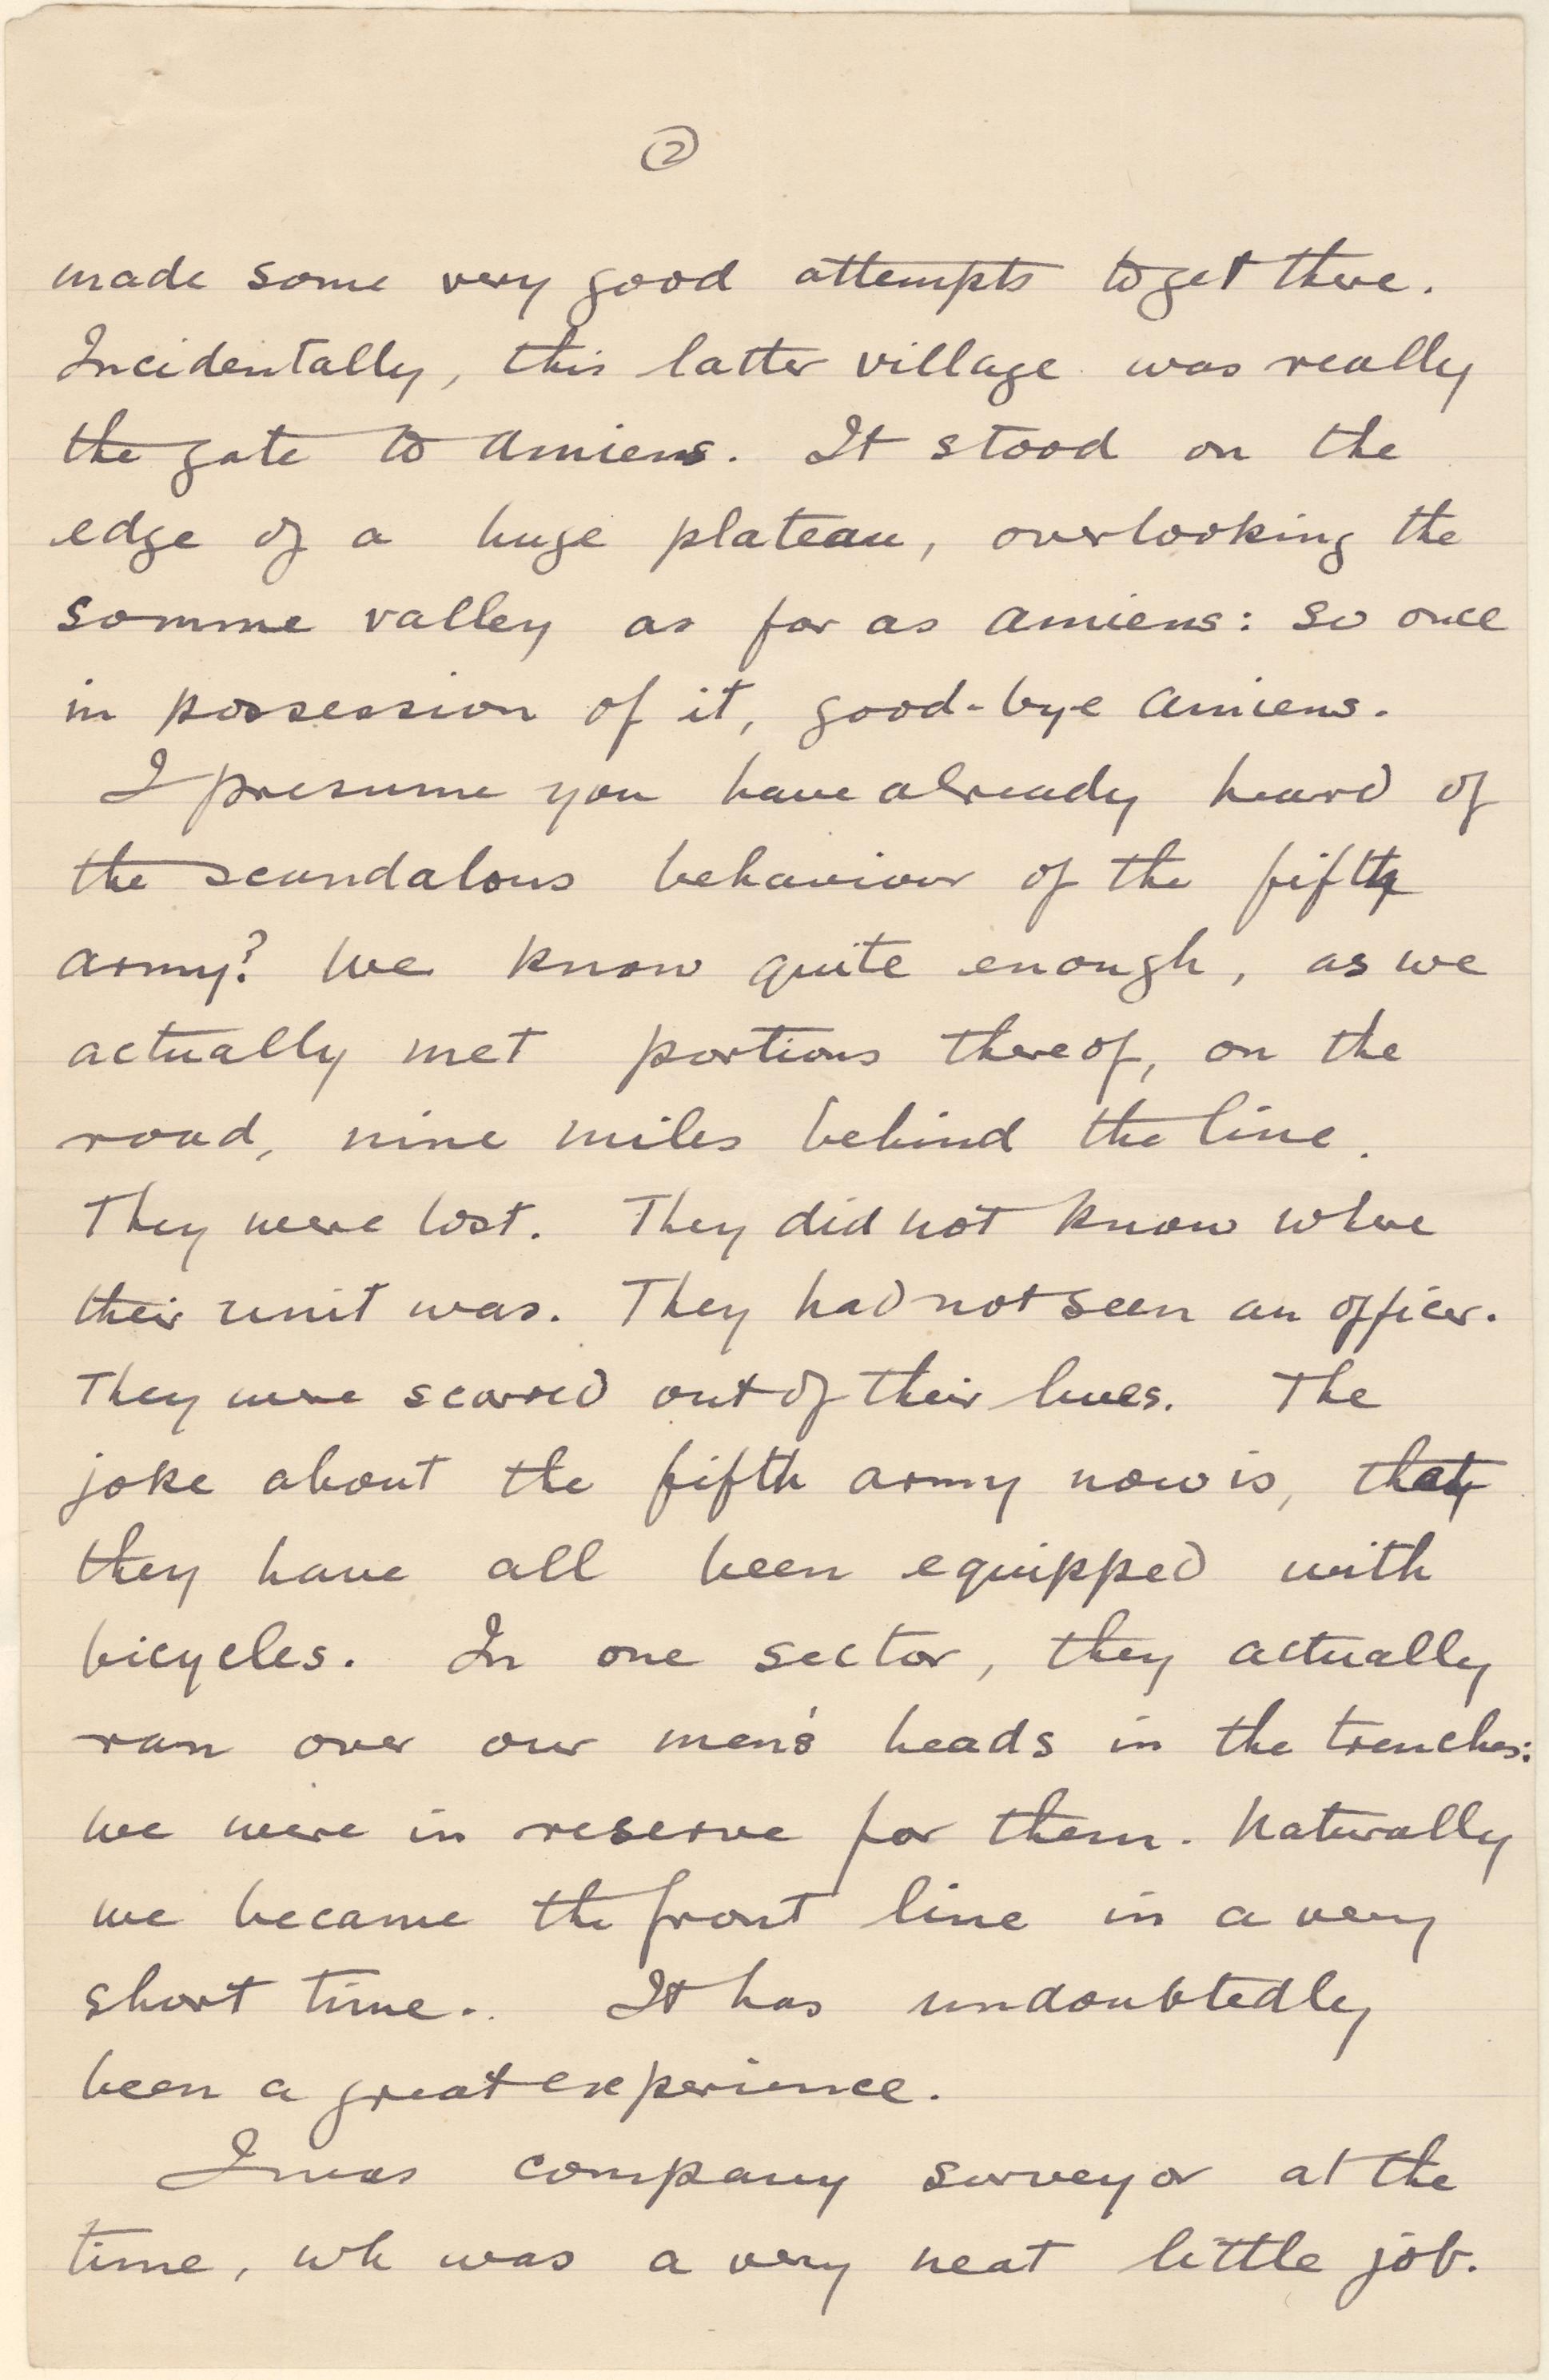 ②
made some very good attempts to get there.
Incidentally, this latter village was really
the gate to Amiens. It stood on the
edge of a huge plateau, overlooking the
Somme valley as far as Amiens: so once
in possession of it, good-bye Amiens.
I presume you have already heard of
the scandalous behaviour of the fifth
army? We know quite enough, as we
actually met portions thereof, on the
road, nine miles behind the line.
They were lost. They did not know where
their unit was. They had not seen an officer.
They were scarred out of their lives. The
joke about the fifth army now is, that
they have all been equipped with
bicycles. In one sector, they actually
ran over our men's heads in the trenches:
we were in reserve for them. Naturally
we became the front line in a very
short time. It has undoubtedly
been a great experience.
I was company surveyor at the
time, wh was a very neat little job.